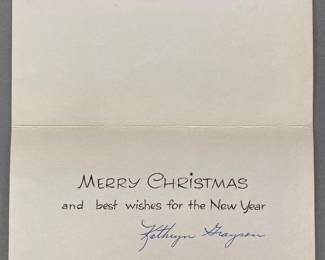 MERRY CHRISTMAS
and best wishes for the New Year
Kathryn Grayson